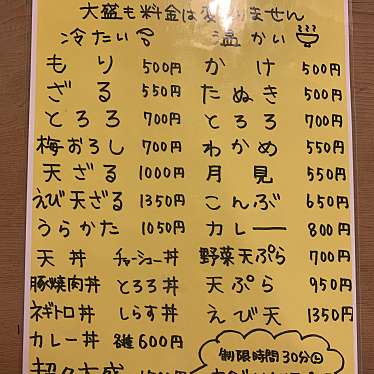 大盛も料金は変りません
冷たい 温かい
もり 500円 かけ 500円
ざる 550円 たぬき 550円
とろろ 700円 とろろ 700円
梅おろし 700円 わかめ 550円
天ざる 1000円 月見 550円
えび天ざる 1350円 こんぶ 650円
うらかた 1050円 カレー 800円
天丼 チャーシュー丼 野菜天ぷら 700円
豚焼肉丼 とろろ丼 天ぷら 950円
ネギトロ丼 しらす丼 えび天 1350円
カレー丼 各種600円
制限時間30分